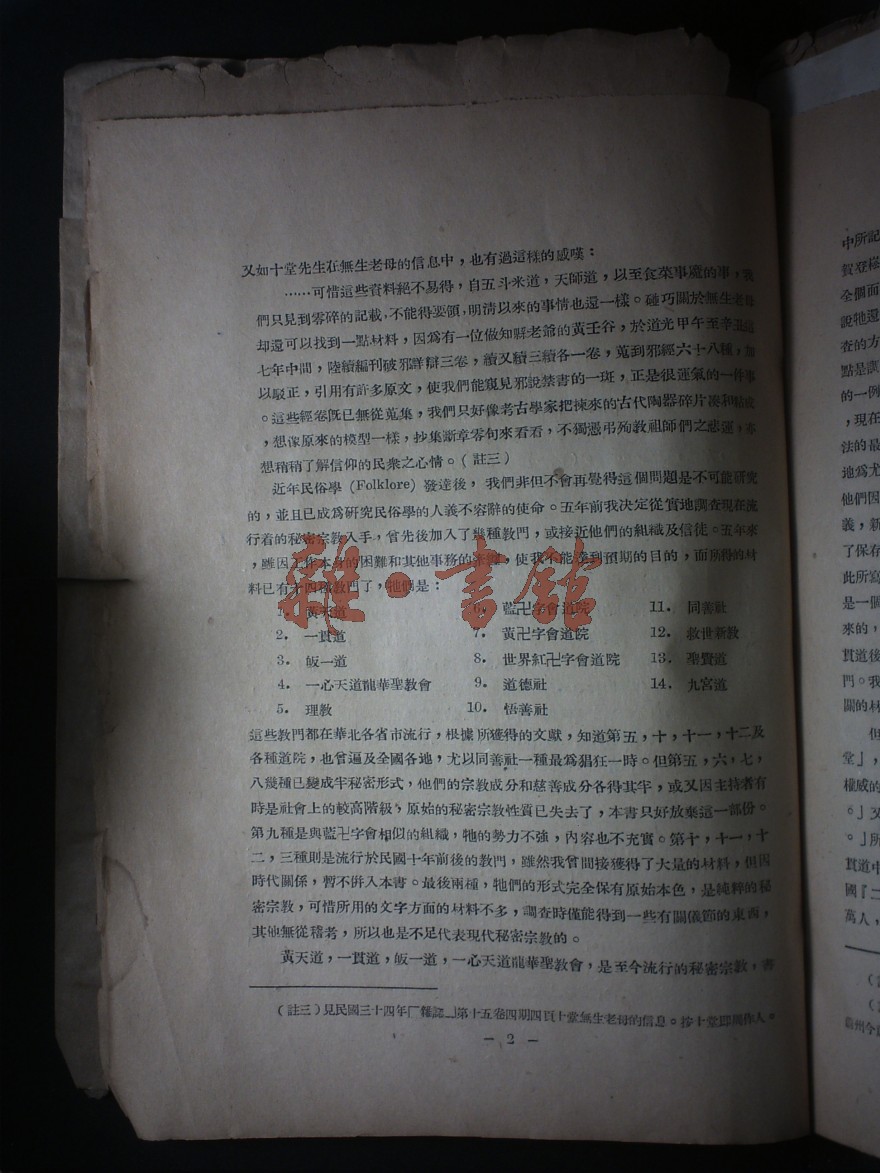 又如十堂先生在無生老母的信息中，也有過這樣的感嘆：
……可惜這些資料絕不易得，自五斗米道，天師道，以至食菜事魔的事，我
們只見到零碎的記載，不能得要領，明清以來的事情也還一樣。碰巧關於無生老母
却還可以找到一點材料，因爲有一位做知縣老爺的黃壬谷，於道光甲午至辛丑這
七年中間，陸續編刊破邪詳辯三卷，續又續三續各一卷，蒐到邪經六十八種，加
以駁正，引用有許多原文，使我們能窺見邪說禁書的一斑，正是很運氣的一件事
。這些經卷旣已無從蒐集，我們只好像考古學家把揀來的古代陶器碎片湊和粘成
，想像原來的模型一樣，抄集斷章零句來看看，不獨憑弔殉敎祖師們之悲運，亦
想稍稍了解信仰的民衆之心情。（註三）
近年民俗學 (Folklore) 發達後，我們非但不會再覺得這個問題是不可能研究
的，並且已成爲研究民俗學的人義不容辭的使命。五年前我決定從實地調查現在流
行着的秘密宗敎入手，曾先後加入了幾種敎門，或接近他們的組織及信徒。五年來
，雖因工作本身的困難和其他事務的，使我不能達到預期的目的，而所得的材
料已有十四種敎門了，牠們是：
雜·書館
1． 黃天道 6． 藍卍字會道院 11． 同善社
2． 一貫道 7． 黃卍字會道院 12． 救世新敎
3． 皈一道 8． 世界紅卍字會道院 13． 聖賢道
4． 一心天道龍華聖敎會 9． 道德社 14． 九宮道
5． 理敎 10． 悟善社
這些敎門都在華北各省市流行，根據所獲得的文獻，知道第五，十，十一，十二及
各種道院，也曾遍及全國各地，尤以同善社一種最爲猖狂一時。但第五，六，七，
八幾種已變成半秘密形式，他們的宗敎成分和慈善成分各得其半，或又因主持者有
時是社會上的較高階級，原始的秘密宗敎性質已失去了，本書只好放棄這一部份。
第九種是與藍卍字會相似的組織，牠的勢力不強，內容也不充實。第十，十一，十
二，三種則是流行於民國十年前後的敎門，雖然我曾間接獲得了大量的材料，但因
時代關係，暫不併入本書。最後兩種，牠們的形式完全保有原始本色，是純粹的秘
密宗敎，可惜所用的文字方面的材料不多，調查時僅能得到一些有關儀節的東西，
其他無從稽考，所以也是不足代表現代秘密宗敎的。
黃天道，一貫道，皈一道，一心天道龍華聖敎會，是至今流行的秘密宗敎，書
（註三）見民國三十四年「雜誌」第十五卷四期四頁十堂無生老母的信息。按十堂即周作人。
－ 2 －
中所記
賀登崧
全個面
說牠還
查的方
點是調
的一例
，現在
法的最
地爲尤
他們因
義，新
了保存
此所寫
是一個
來的，
貫道後
門。我
關的材
但
堂」，
權威的
。」又
。」所
貫道中
國『二
萬人，